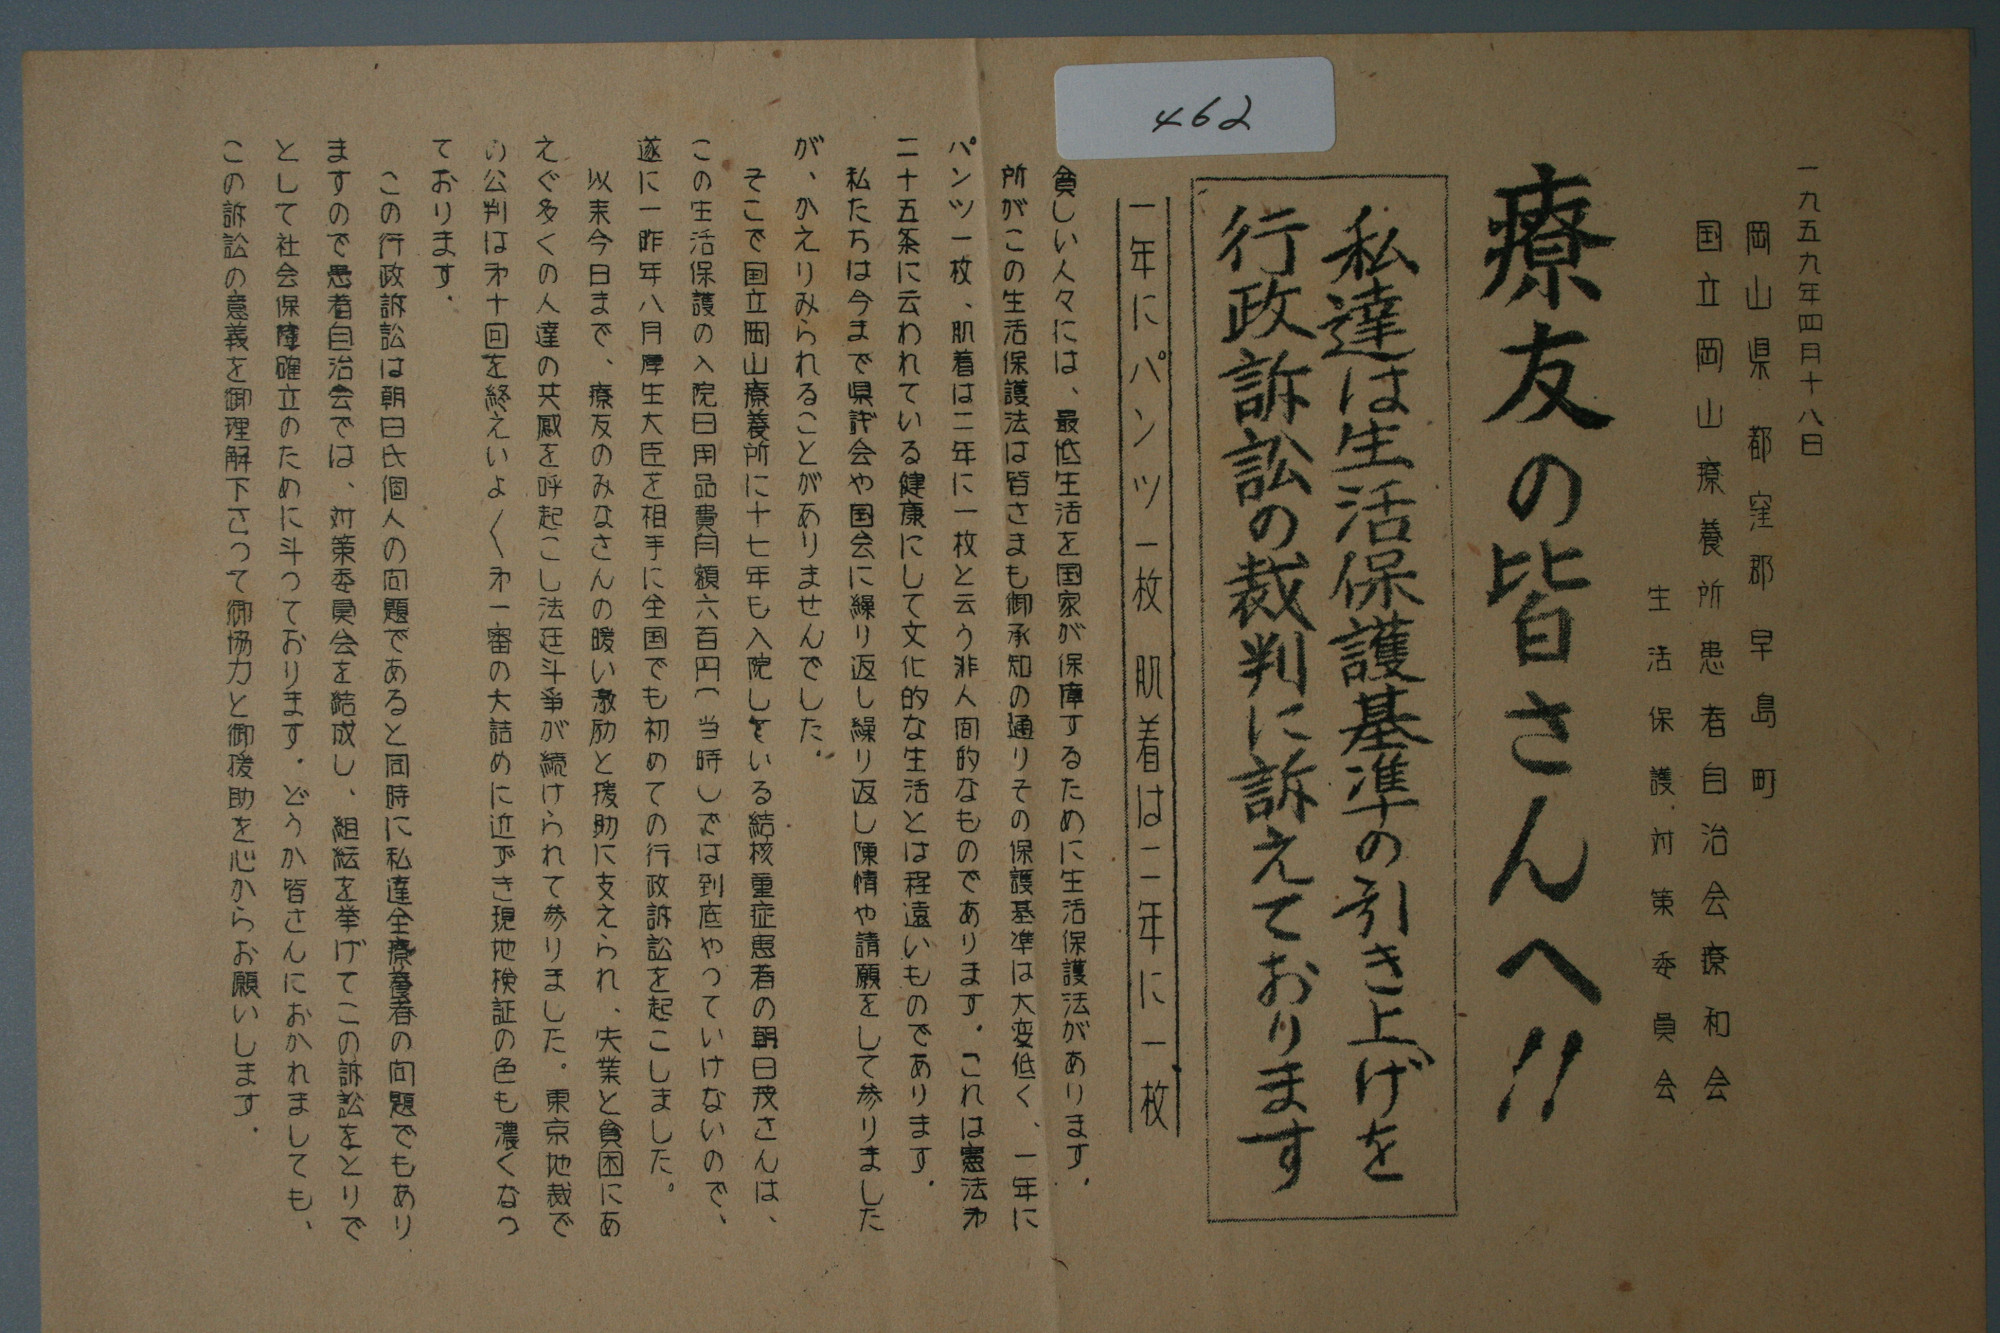 462
一九五九年四月十八日
岡山県都窪郡早島町
国立岡山療養所患者自治会療和会
生活保護対策委員会
療友の皆さんへ!!
私達は生活保護基準の引き上げを
行政訴訟の裁判に訴えております
一年にパンツ一枚 肌着は二年に一枚
貧しい人々には、最低生活を国家が保障するために生活保護法があります．
所がこの生活保護法は皆さまも御承知の通りその保護基準は大変低く、一年に
パンツ一枚、肌着は二年に一枚と云う非人间的なものであります．これは憲法㐧
二十五条に云われている健康にして文化的な生活とは程遠いものであります．
私たちは今まで県議会や国会に繰り返し繰り返し陳情や請願をして参りました
が、かえりみられることがありませんでした．
そこで国立岡山療養所に十七年も入院している結核重症患者の朝日茂さんは、
この生活保護の入院日用品費月額六百円(当時)では到底やっていけないので、
遂に一昨年八月厚生大臣を相手に全国でも初めての行政訴訟を起こしました。
以来今日まで、療友のみなさんの暖い激励と援助に支えられ、失業と貧困にあ
えぐ多くの人達の共感を呼起こし法廷斗争が続けられて参りました。東京地裁で
の公判は㐧十回を終えいよ〱㐧一審の大詰めに近ずき現地検証の色も濃くなっ
ております．
この行政訴訟は朝日氏個人の问題であると同時に私達全療養者の问題でもあり
ますので患者自治会では、対策委員会を結成し、組紜を挙げてこの訴訟をとりで
として社会保障確立のために斗っております．どうか皆さんにおかれましても、
この訴訟の意義を御理解下さって御協力と御援助を心からお願いします．